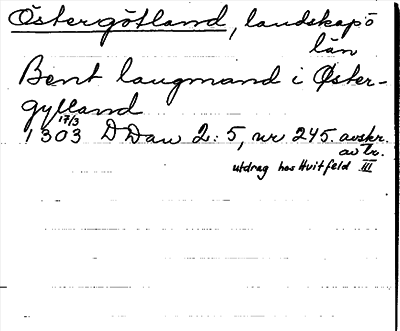 Östergötland, landskap o
län
Bent laugmand i Øster-
gylland
17/3
1303 DDan 2:5, nr 245. avskr.
av tr.
utdrag hos Hvitfeld III